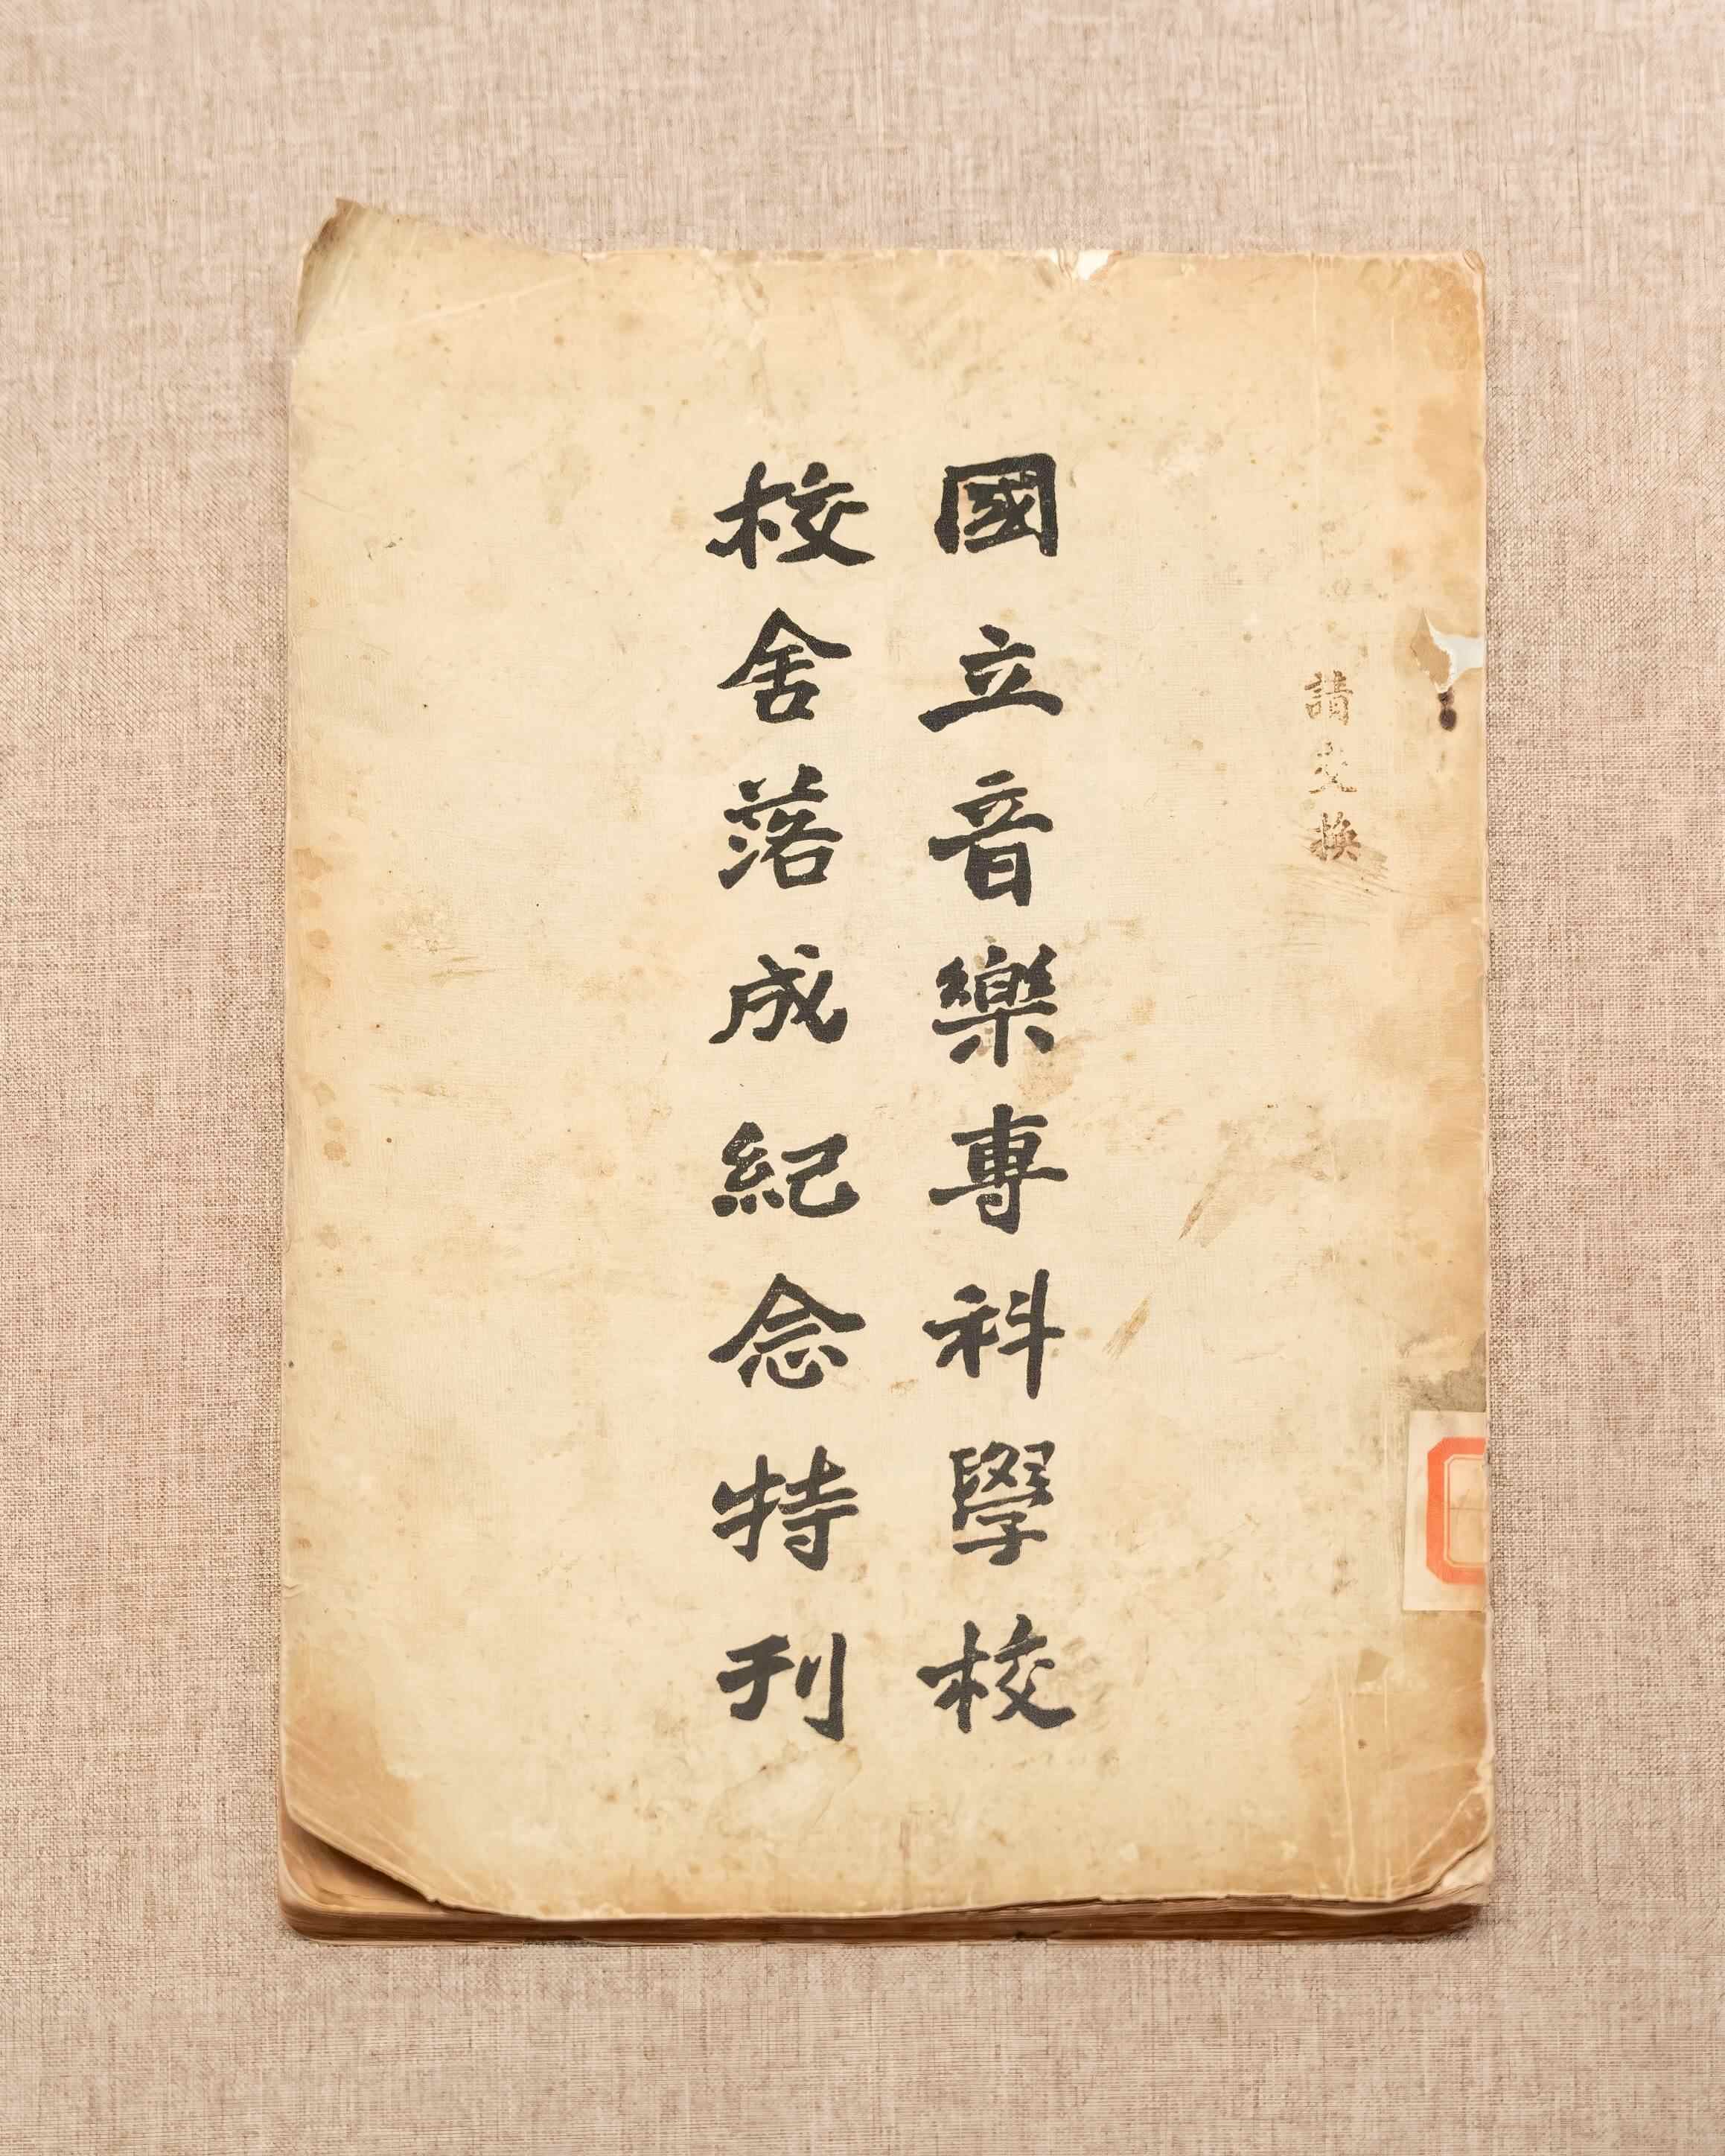 請交換
國立音樂專科學校
校舍落成紀念特刊